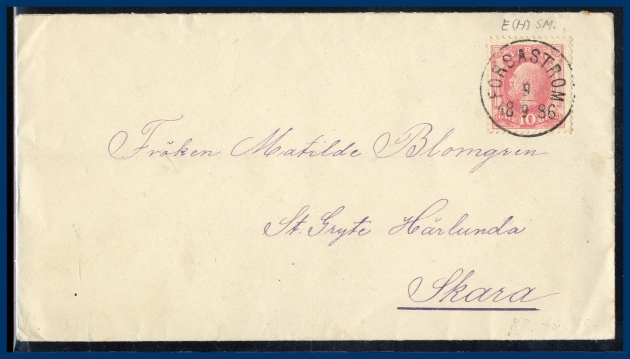 E(H) SM.
FORSASTROM
9
18 9 86
10
Fröken Matilde Blomgren
St. Gryte Härlunda
Skara